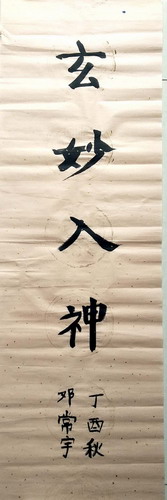 玄妙入神
丁酉秋
邓常宇